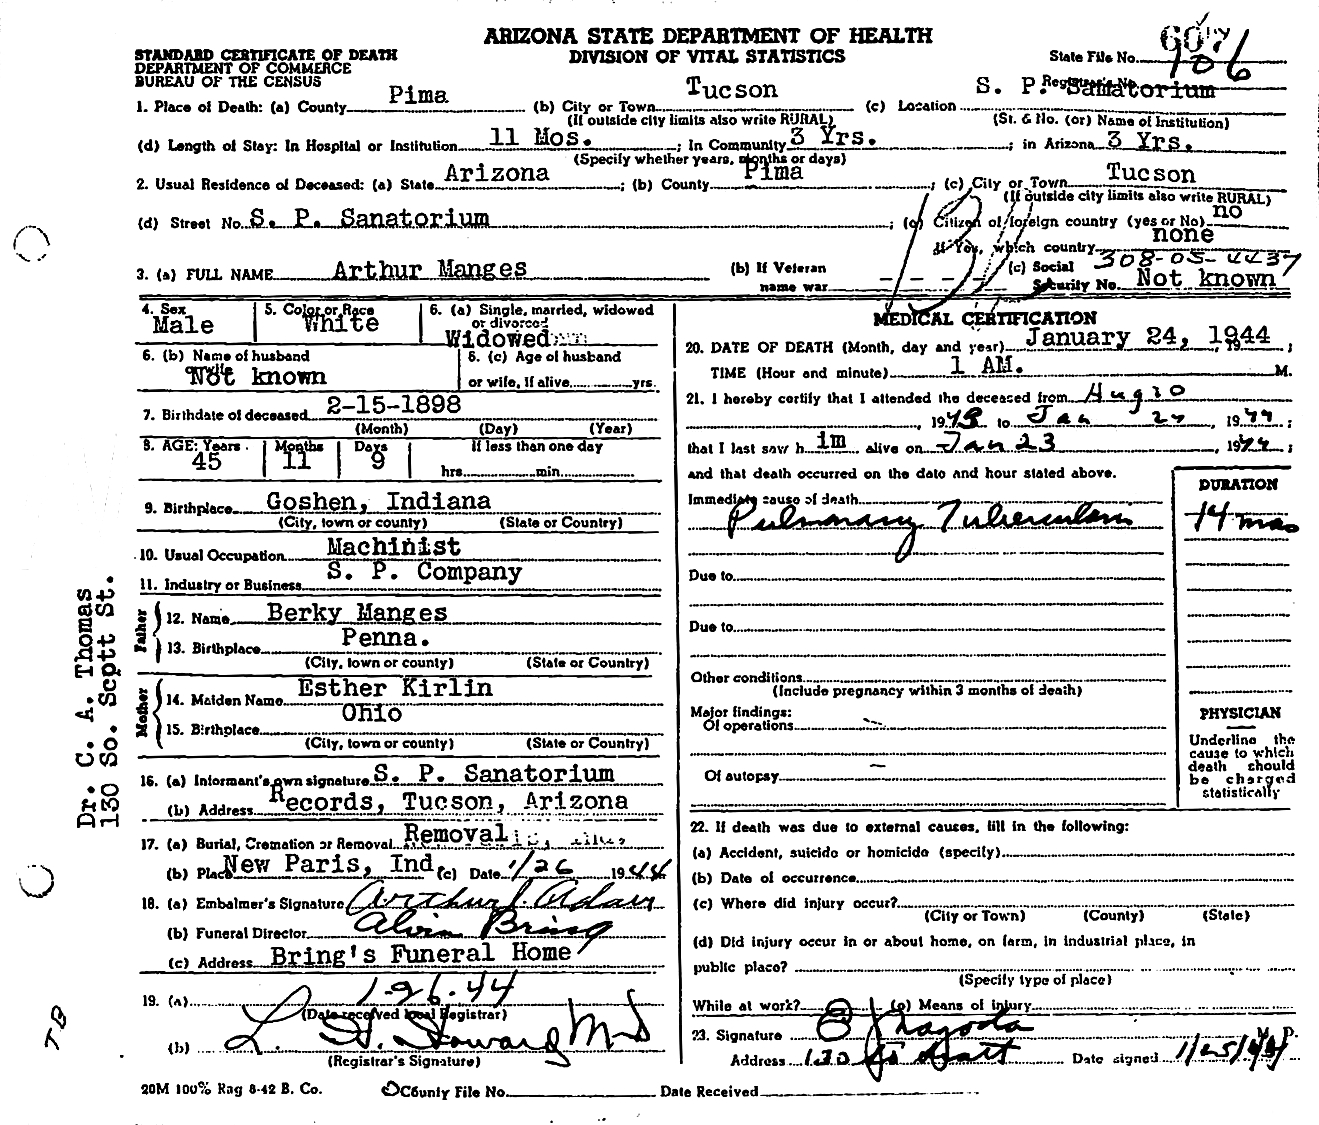 ARIZONA STATE DEPARTMENT OF HEALTH
DIVISION OF VITAL STATISTICS
STANDARD CERTIFICATE OF DEATH
DEPARTMENT OF COMMERCE
BUREAU OF THE CENSUS
State File No. 607
Registrar's No. 106
1. Place of Death: (a) County Pima (b) City or Town Tucson (c) Location S. P. Sanatorium
(If outside city limits also write RURAL) (St. & No. (or) Name of Institution)
(d) Length of Stay: In Hospital or Institution 11 Mos. ; In Community 3 Yrs. ; in Arizona 3 Yrs.
(Specify whether years, months or days)
2. Usual Residence of Deceased: (a) State Arizona ; (b) County Pima ; (c) City or Town Tucson
(If outside city limits also write RURAL)
(d) Street No. S. P. Sanatorium ; (e) Citizen of foreign country (yes or No) no
If Yes, which country none
3. (a) FULL NAME Arthur Manges (b) If Veteran name war - - - (c) Social Security No. 308-05-4437 Not known
4. Sex Male
5. Color or Race White
6. (a) Single, married, widowed or divorced Widowed
6. (b) Name of husband or wife Not known
6. (c) Age of husband or wife, if alive yrs.
7. Birthdate of deceased 2-15-1898
(Month) (Day) (Year)
8. AGE: Years 45 Months 11 Days 9 If less than one day hrs. min.
9. Birthplace Goshen, Indiana
(City, town or county) (State or Country)
10. Usual Occupation Machinist
11. Industry or Business S. P. Company
Father
12. Name Berky Manges
13. Birthplace Penna.
(City, town or county) (State or Country)
Mother
14. Maiden Name Esther Kirlin
15. Birthplace Ohio
(City, town or county) (State or Country)
16. (a) Informant's own signature S. P. Sanatorium
(b) Address Records, Tucson, Arizona
17. (a) Burial, Cremation or Removal Removal
(b) Place New Paris, Ind. (c) Date 1/26 1944
18. (a) Embalmer's Signature Arthur J. Adair
(b) Funeral Director Alvin Bring
(c) Address Bring's Funeral Home
19. (a) 1-26-44
(Date received local Registrar)
(b) L. H. Howard MD
(Registrar's Signature)
MEDICAL CERTIFICATION
20. DATE OF DEATH (Month, day and year) January 24, 1944 ;
TIME (Hour and minute) 1 AM. M.
21. I hereby certify that I attended the deceased from Aug 20
, 1943 to Jan 24 , 1944 ;
that I last saw h im alive on Jan 23 , 1944 ;
and that death occurred on the date and hour stated above.
DURATION
Immediate cause of death
Pulmonary Tuberculosis 14 mos
Due to
Due to
Other conditions
(Include pregnancy within 3 months of death)
Major findings:
Of operations
Of autopsy
PHYSICIAN
Underline the
cause to which
death should
be charged
statistically
22. If death was due to external causes, fill in the following:
(a) Accident, suicide or homicide (specify)
(b) Date of occurrence
(c) Where did injury occur?
(City or Town) (County) (State)
(d) Did injury occur in or about home, on farm, in industrial place, in
public place?
(Specify type of place)
While at work? (e) Means of injury
23. Signature M. D.
Address 130 So Scott Date signed 1/25/44
20M 100% Rag 8-42 B. Co. County File No. Date Received
Dr. C. A. Thomas
130 So. Scott St.
TB